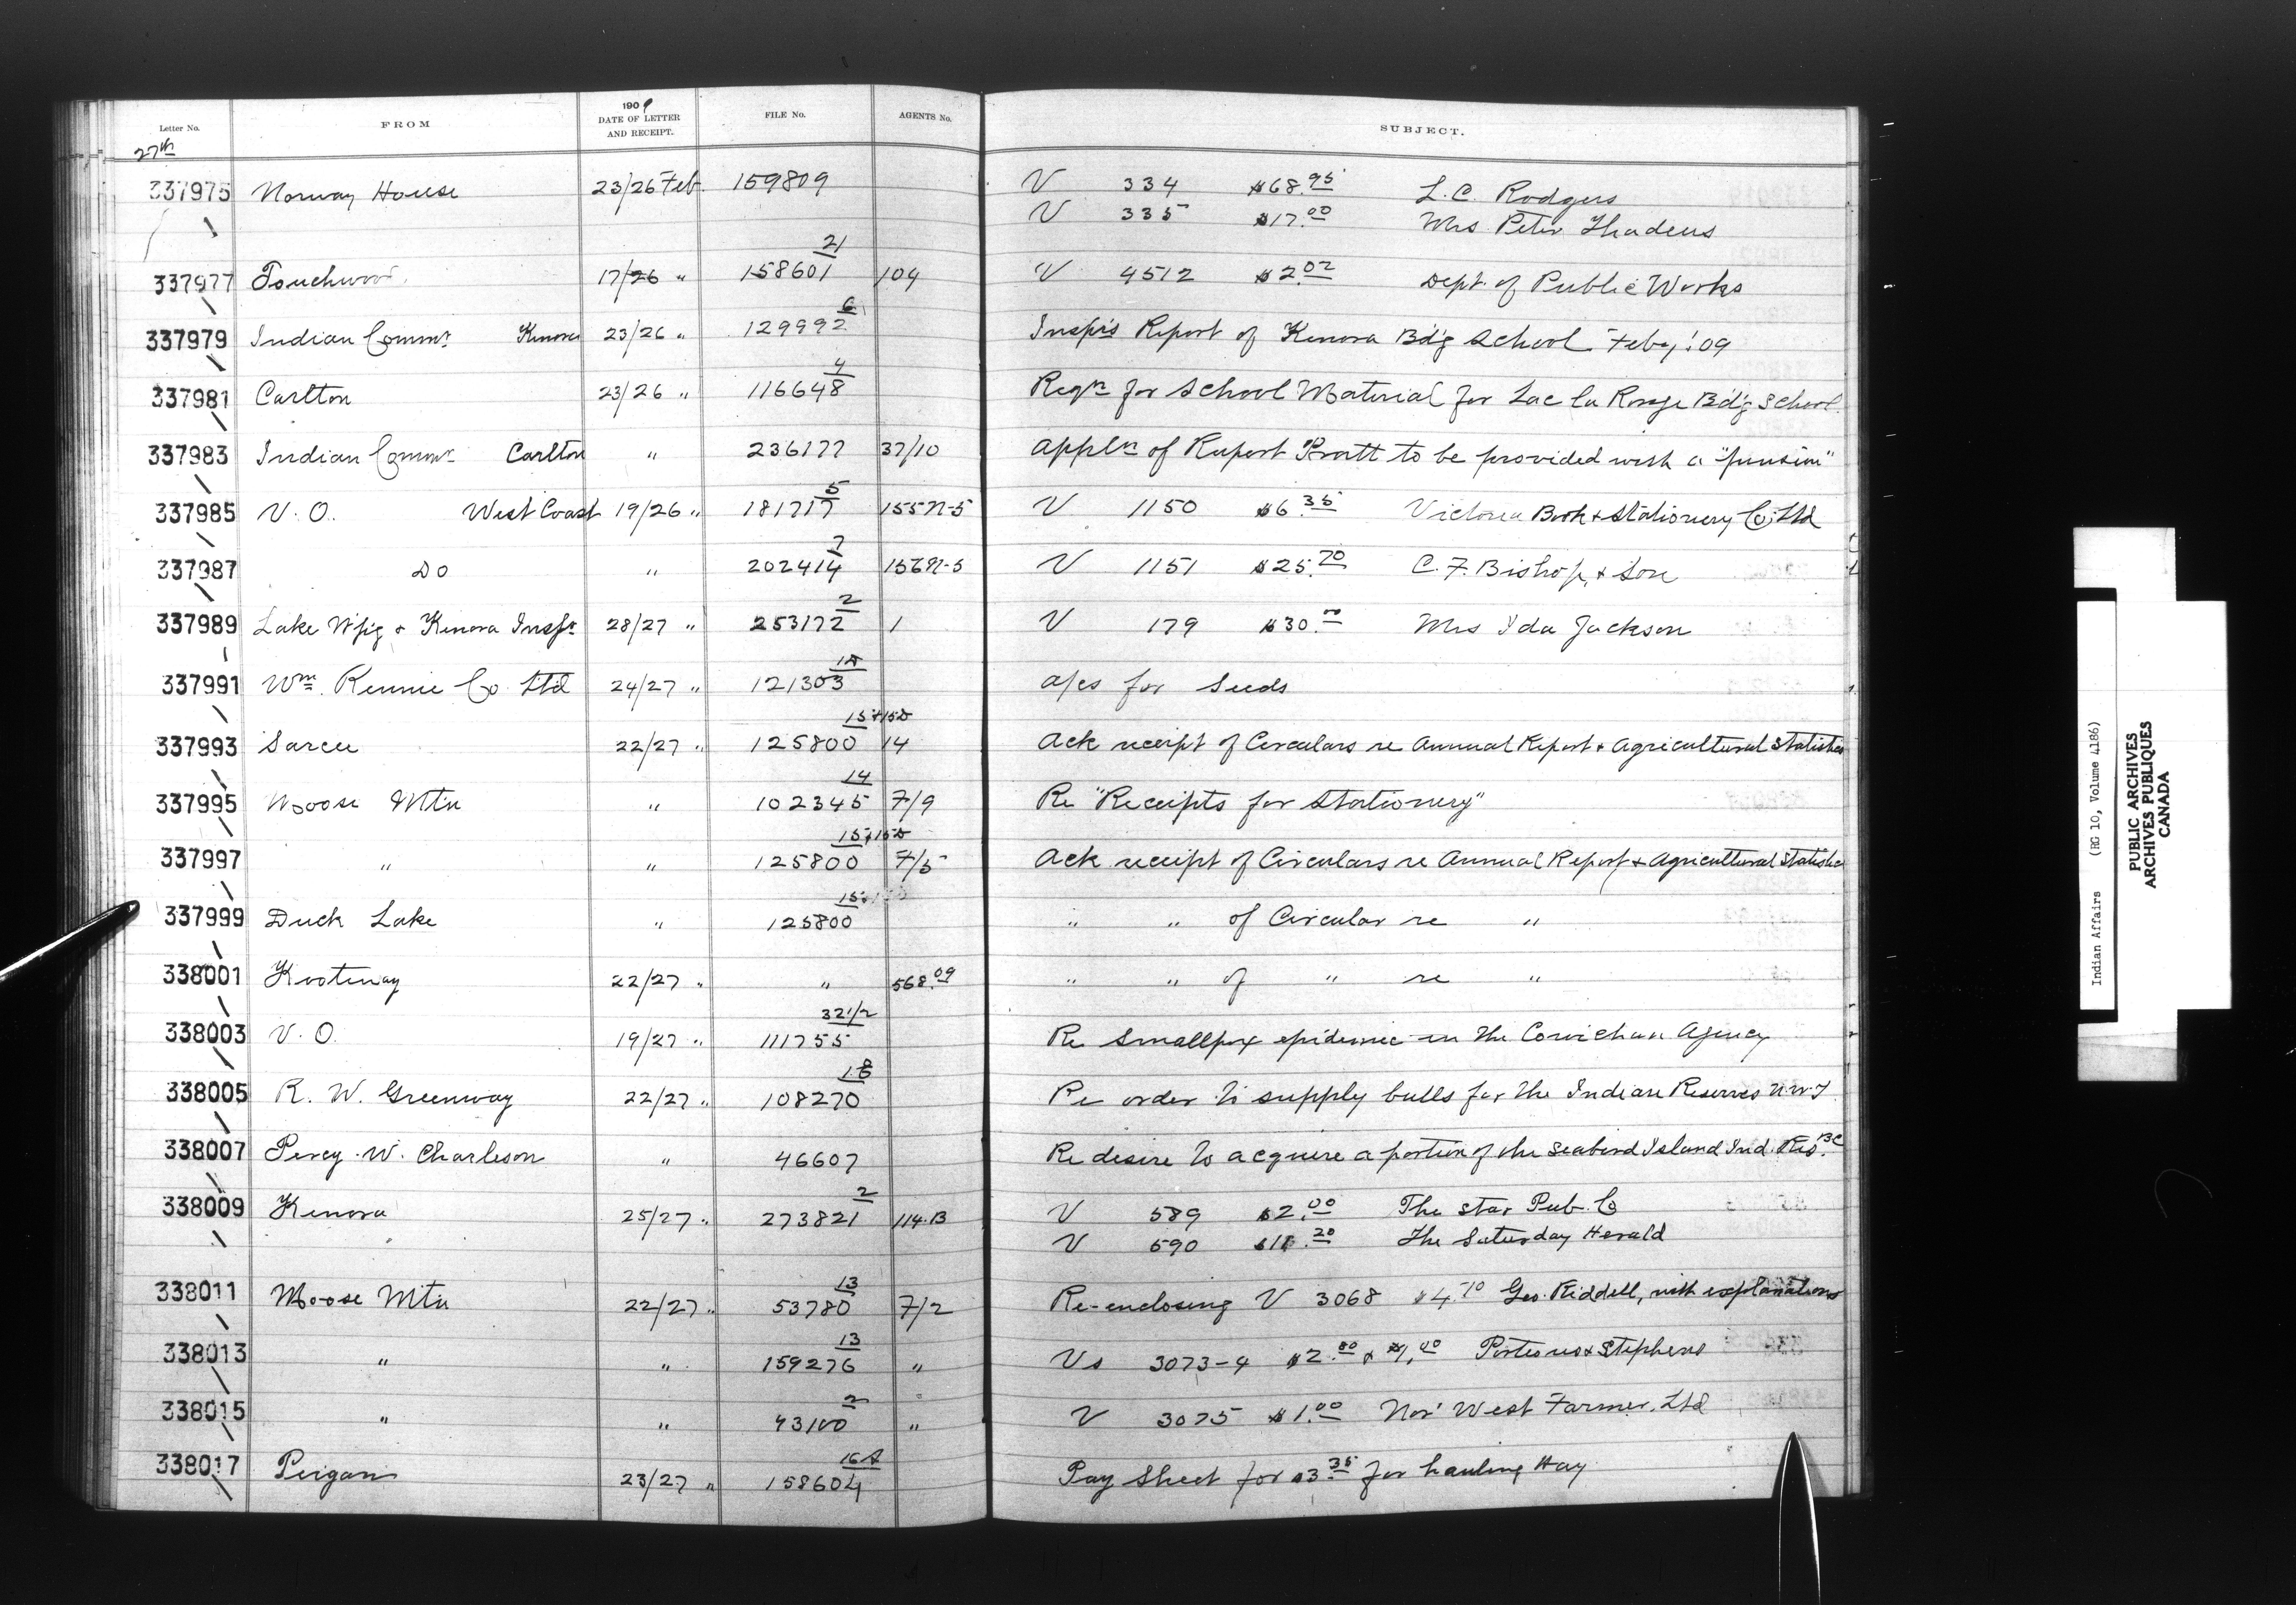 Letter No. FROM 1909 DATE OF LETTER AND RECEIPT. FILE No. AGENTS No. SUBJECT.
27th
337975 Norway House 23/26 Feb. 159809 V 334 $68.95 L. C. Rodgers
V 335 $17.00 Mrs Peter Thadeus
337977 Touchwood 17/26 " 158601 21 104 V 4512 $2.02 Dept. of Public Works
337979 Indian Commr Kenora 23/26 " 129992 6 Inspr's Report of Kenora Bd'g School Feby, '09
337981 Carlton 23/26 " 116648 4 Reqn for School Material for Lac la Ronge Bd'g School
337983 Indian Commr Carlton " 236177 37/10 Appln of Rupert Pratt to be provided with a "pension"
337985 V. O. West Coast 19/26 " 181717 5 155N-5 V 1150 $6.35 Victoria Book & Stationery Co. Ltd
337987 Do " 202414 7 156N-5 V 1151 $25.70 C. F. Bishop, & Son
337989 Lake Wpig & Kenora Inspr 28/27 " 253172 2 1 V 179 $30.00 Mrs Ida Jackson
337991 Wm. Rennie Co Ltd 24/27 " 121303 a/cs for Seeds
337993 Sarcee 22/27 " 125800 14 Ack receipt of Circulars re Annual Report & Agricultural Statistics
337995 Moose Mtn " 102345 14 7/9 Re "Receipts for Stationery"
337997 " " 125800 7/5 Ack receipt of Circulars re Annual Report & Agricultural Statistics
337999 Duck Lake " 125800 " " of Circular re "
338001 Kootenay 22/27 " " 568.09 " " of " re "
338003 V. O. 19/27 " 111755 321/2 Re Smallpox epidemic in the Cowichan Agency
338005 R. W. Greenway 22/27 " 108270 18 Re order to supply bulls for the Indian Reserves N.W.T.
338007 Percy W. Charleson " 46607 Re desire to acquire a portion of the Seabird Island Ind. Res. BC
338009 Kenora 25/27 " 273821 2 114.B V 589 $2.00 The Star Pub. Co
V 590 $11.20 The Saturday Herald
338011 Moose Mtn 22/27 " 53780 13 7/2 Re-enclosing V 3068 $4.70 Geo. Riddell, with explanations
338013 " " 159276 13 " Vs 3073-4 $2.80 & Porteous & Stephens
338015 " " 43100 2 " V 3075 $1.00 Nor' West Farmer, Ltd
338017 Peigan 23/27 " 158604 16A Pay Sheet for $3.35 for hauling Hay
Indian Affairs (RG 10, Volume 4186)
PUBLIC ARCHIVES
ARCHIVES PUBLIQUES
CANADA